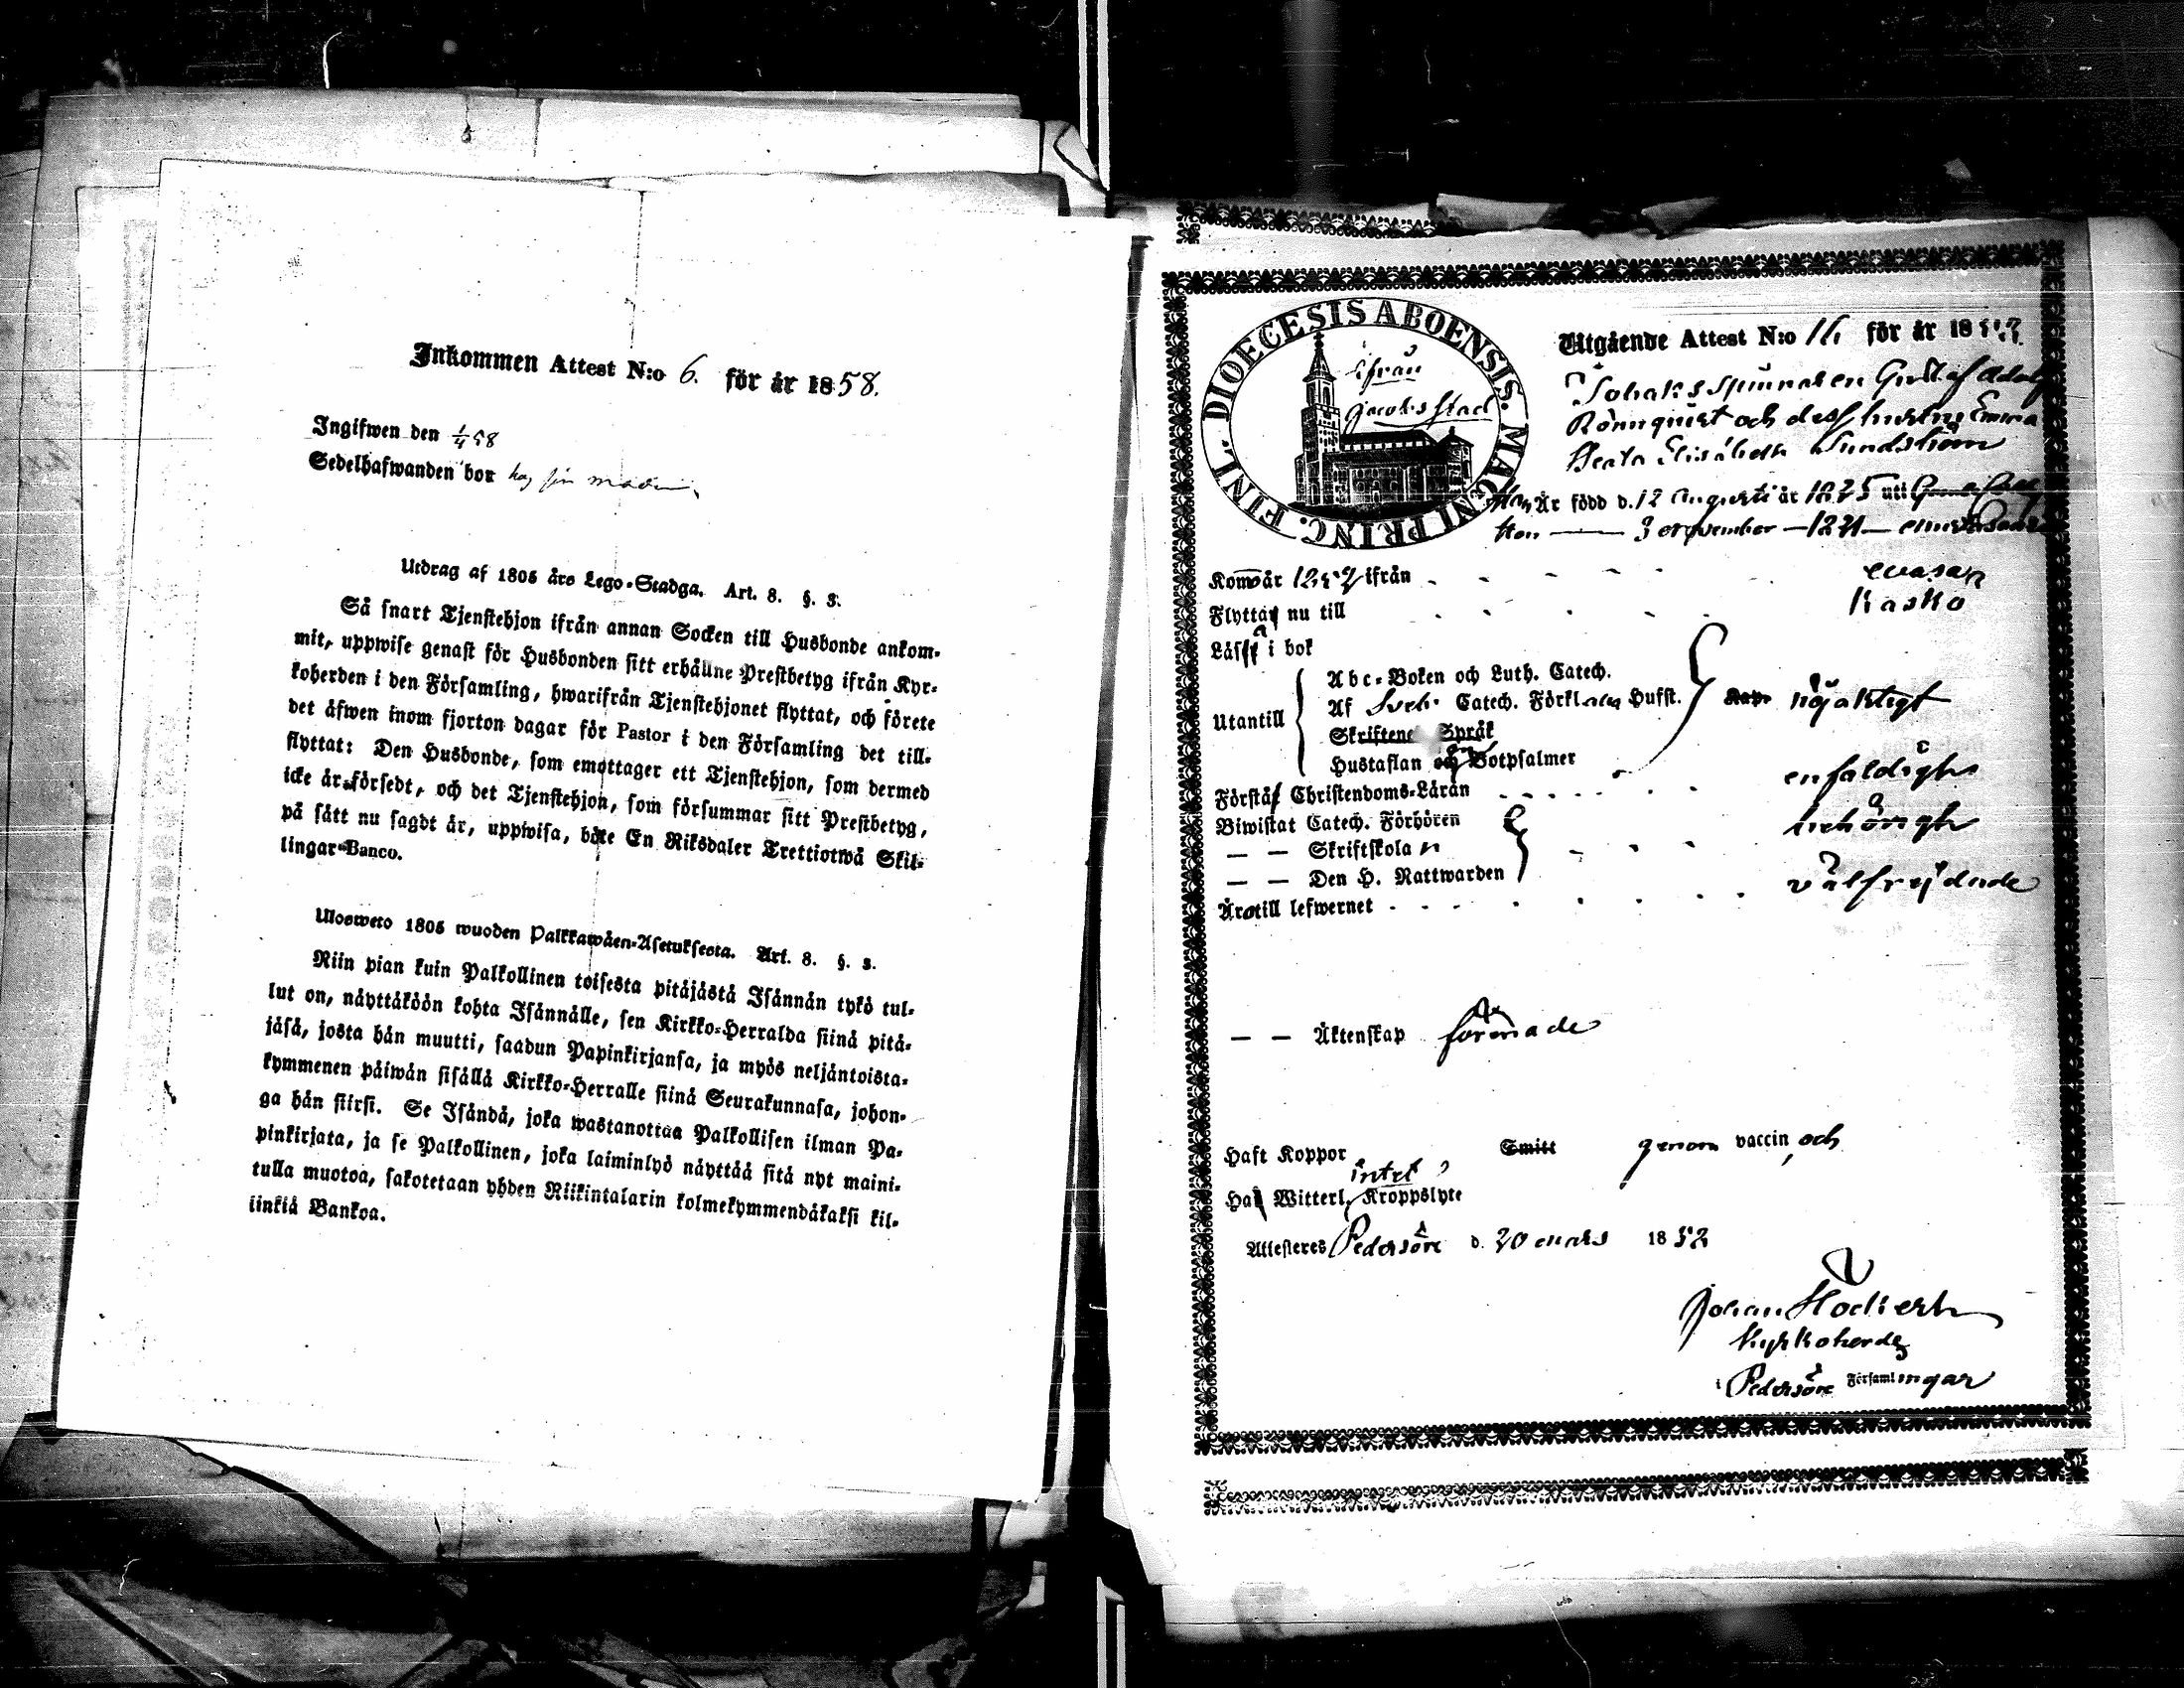 Inkommen Attest N:o 6. för år 1858.
Ingifwen den 1/4 58
Sedelhafwanden bor hos sin
Utdrag af 1805 års Lego-Stadga. Art. 8. §. 3.
Så snart Tjenstehjon ifrån annan Socken till Husbonde ankom-
mit, uppwise genast för Husbonden sitt erhållne Prestbetyg ifrån Kyr-
koherden i den Församling, hwarifrån Tjenstehjonet flyttat, och förete
det äfwen inom fjorton dagar för Pastor i den Församling det till-
flyttat: Den Husbonde, som emottager ett Tjenstehjon, som dermed
icke är försedt, och det Tjenstehjon, som försummar sitt Prestbetyg,
på sätt nu sagdt är, uppwisa, böte En Riksdaler Trettiotwå Skil-
lingar Banco.
Ulosweto 1805 wuoden Palkkawäen-Asetuksesta. Art. 8. §. 3.
Niin pian kuin Palkollinen toisesta pitäjästä Isännän tykö tul-
lut on, näyttäköön kohta Isännälle, sen Kirkko-Herralda siinä pitä-
jäsä, josta hän muutti, saadun Papinkirjansa, ja myös neljäntoista-
kymmenen päiwän sisällä Kirkko-Herralle siinä Seurakunnasa, johon-
ga hän siirsi. Se Isändä, joka wastanottaa Palkollisen ilman Pa-
pinkirjata, ja se Palkollinen, joka laiminlyö näyttää sitä nyt maini-
tulla muotoa, sakotetaan yhden Riikintalarin kolmekymmendäkaksi kil-
linkiä Bankoa.
DIOECESIS ABOENSIS. MAGNI PRINC. FINL.
ifrån
Jacobsstad
Utgående Attest N:o 16 för år 1858
Tobaksspinnaren Gustaf Adolf
Rönnquist och dess hustru Emma
Beata Elisabeth Sundström
Han Är född d. 12 Augusti år 1825 uti
Hon — 3 November — 1831 —
Kom år ifrån Wasa
Flytta nu till Kaskö
Läsa i bok
Utantill
Abc-Boken och Luth. Catech.
Af Sveb. Catech. Förklaring Husst. nöjaktigt
Skriftenes Språk
Hustaflan och Botpsalmer
Förstå Christendoms-Läran enfaldigt
Biwistat Catech. Förhören
— — Skriftskola behörigt
— — Den H. Nattwarden
Äro till lefwernet välfrejdade
— — Äktenskap förenade
Haft Koppor Smitt genom vaccin, och
Ha Witterl. Kroppslyte intet
Attesteres Pedersöre d. 20 Mars 1858
Johan
Kyrkoherde
i Pedersöre Församlingar